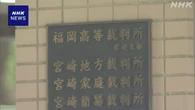 NHK
福岡高等裁判所
宮崎支部
宮崎地方裁判所
宮崎家庭裁判所
宮崎簡易裁判所